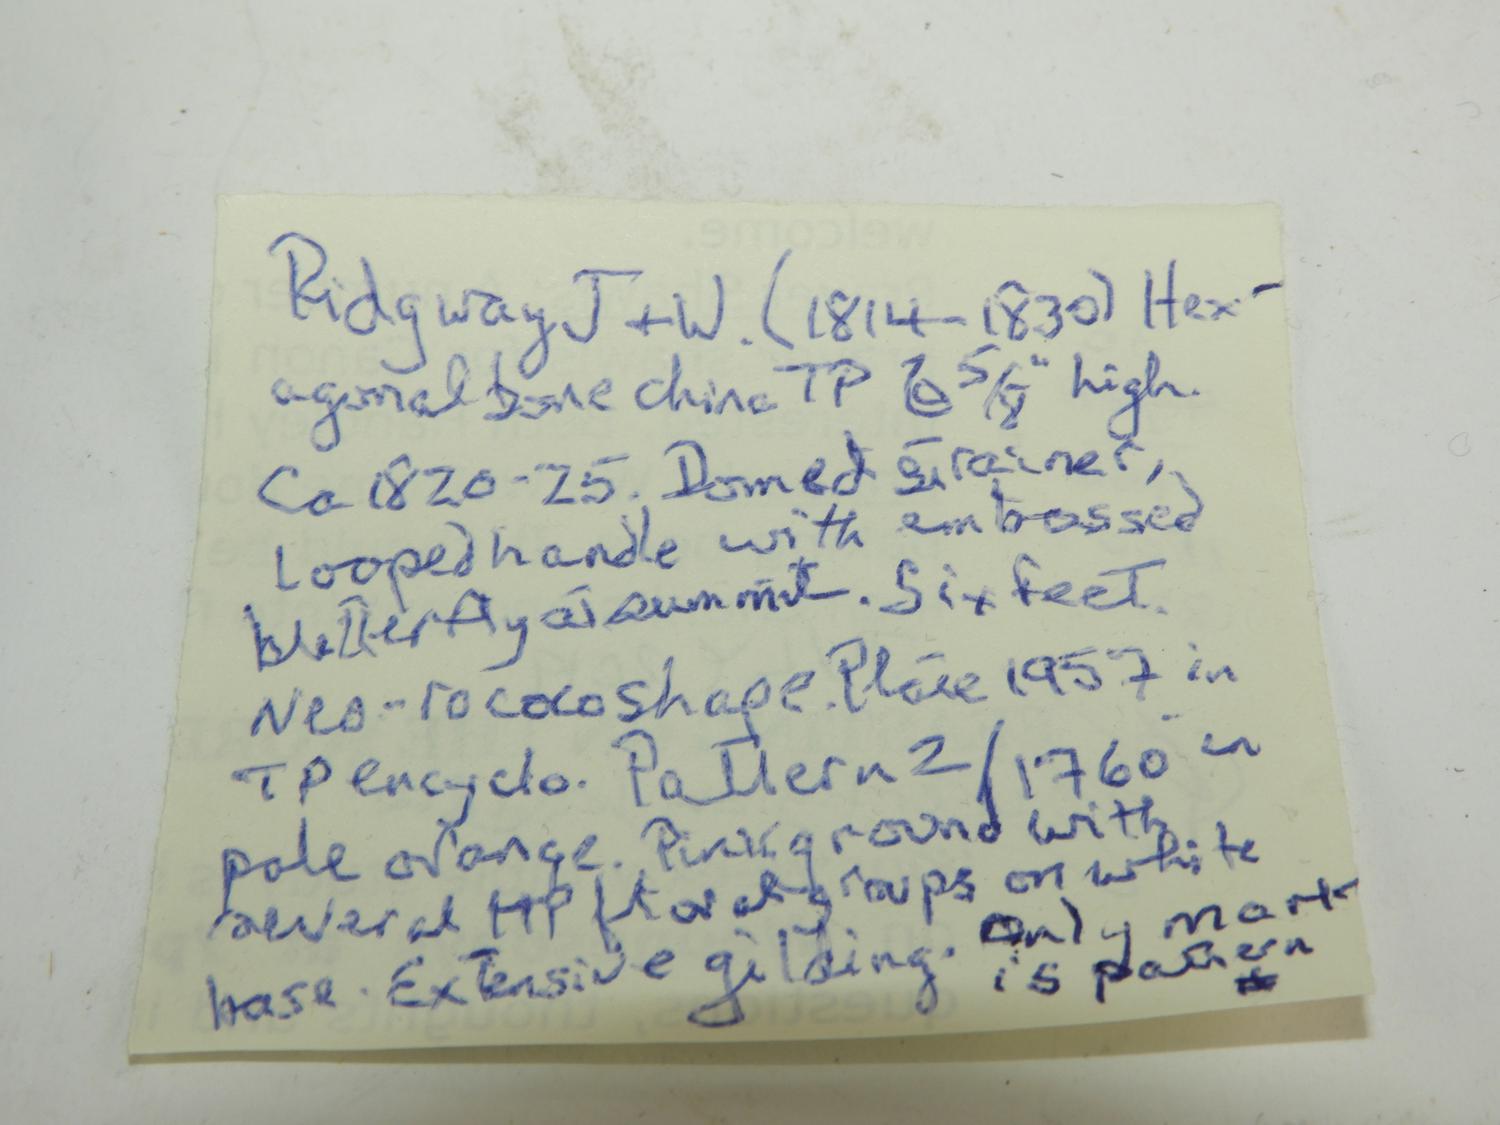 Ridgway J+W. (1814-1830) Hex-
agonal bone china TP 6 5/8" high.
Ca 1820-25. Domed strainer,
Looped handle with embossed
butterfly at summit. Six feet.
Neo-rococo shape. Plate 1957 in
TP encyclo. Pattern 2/1760 in
pale orange. Pink ground with
several HP floral groups on white
base. Extensive gilding. Only mark
is pattern #
welcome.